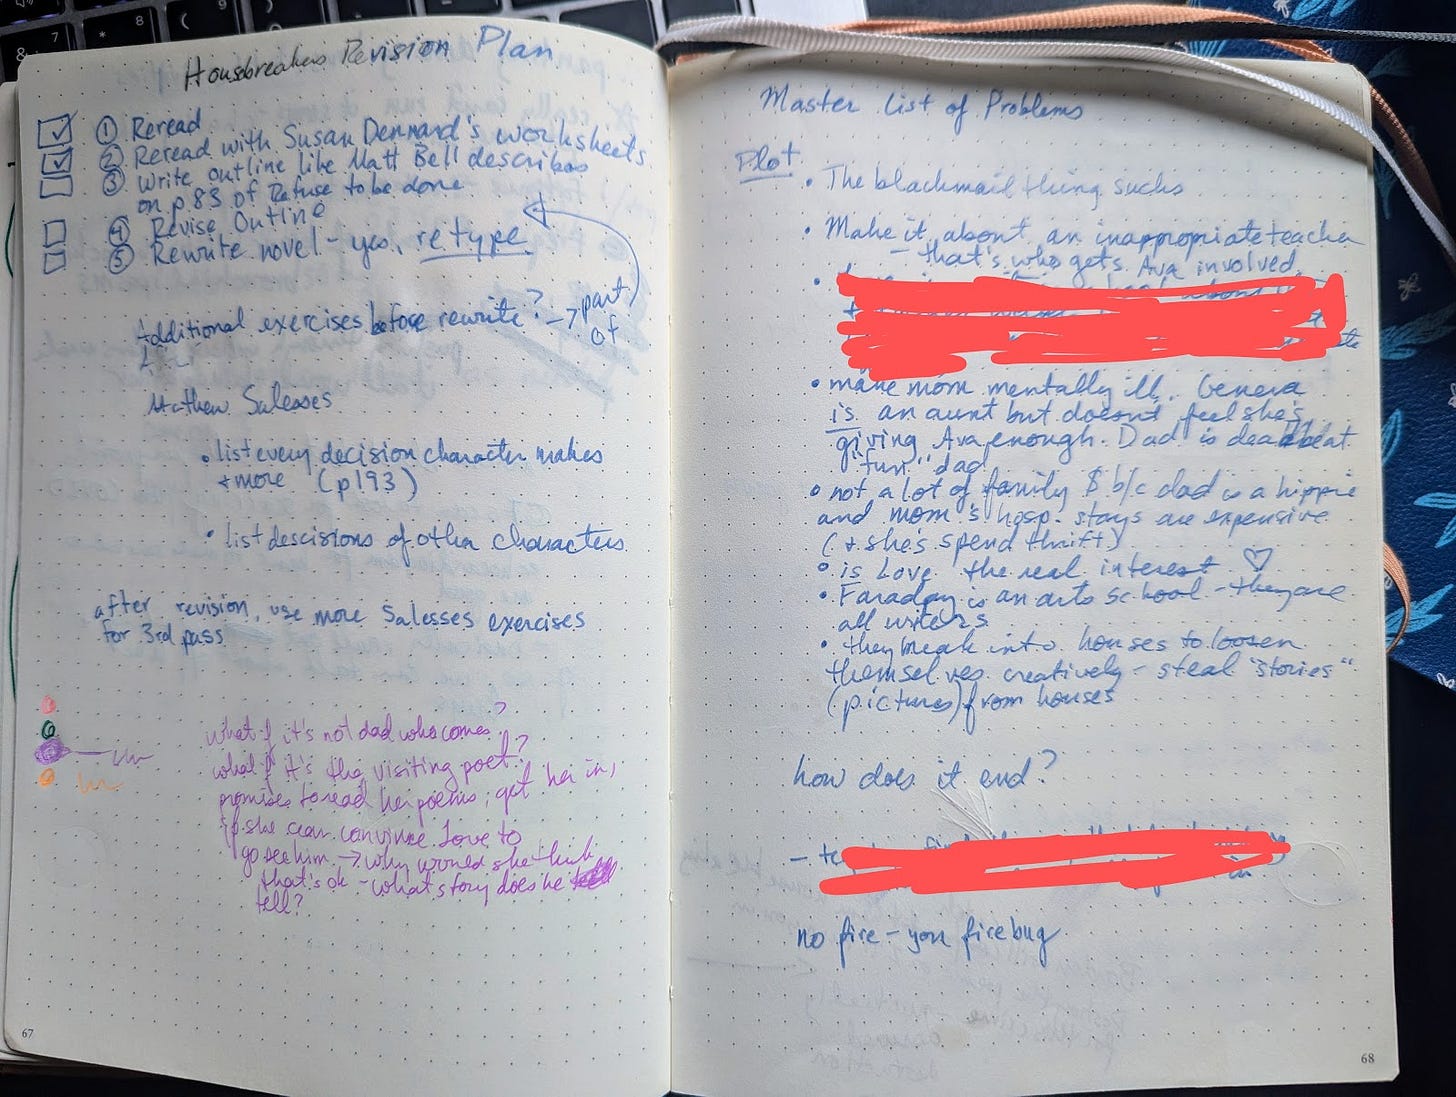 Housbreakers Revision Plan
① Reread
② Reread with Susan Dennard's worksheets
③ Write outline like Matt Bell describes
on p 83 of Refuse to be done
④ Revise Outline
⑤ Rewrite novel - yes, retype
Additional exercises before rewrite? → part
of
Matthew Salesses
• list every decision character makes
+ more (p193)
• list descisions of other characters
after revision, use more Salesses exercises
for 3rd pass
what if it's not dad who comes?
what if it's the visiting poet?
promises to read her poems, get her in,
if she can convince Love to
go see him. → why would she think
that's ok - what story does he
tell?
67
Master List of Problems
Plot
• The blackmail thing sucks
• Make it about an inappropriate teacher
- that's who gets Ava involved
• make mom mentally ill. Geneva
is an aunt but doesnt feel she's
giving Ava enough. Dad is deadbeat
"fun" dad
• not a lot of family $ b/c dad is a hippie
and mom's hosp. stays are expensive
(+ she's spend thrift)
• is Love the real interest ♡
• Faraday is an arts school - they are
all writers
• they break into houses to loosen
themselves creatively - steal "stories"
(pictures) from houses
how does it end?
no fire - you firebug
68
7
8